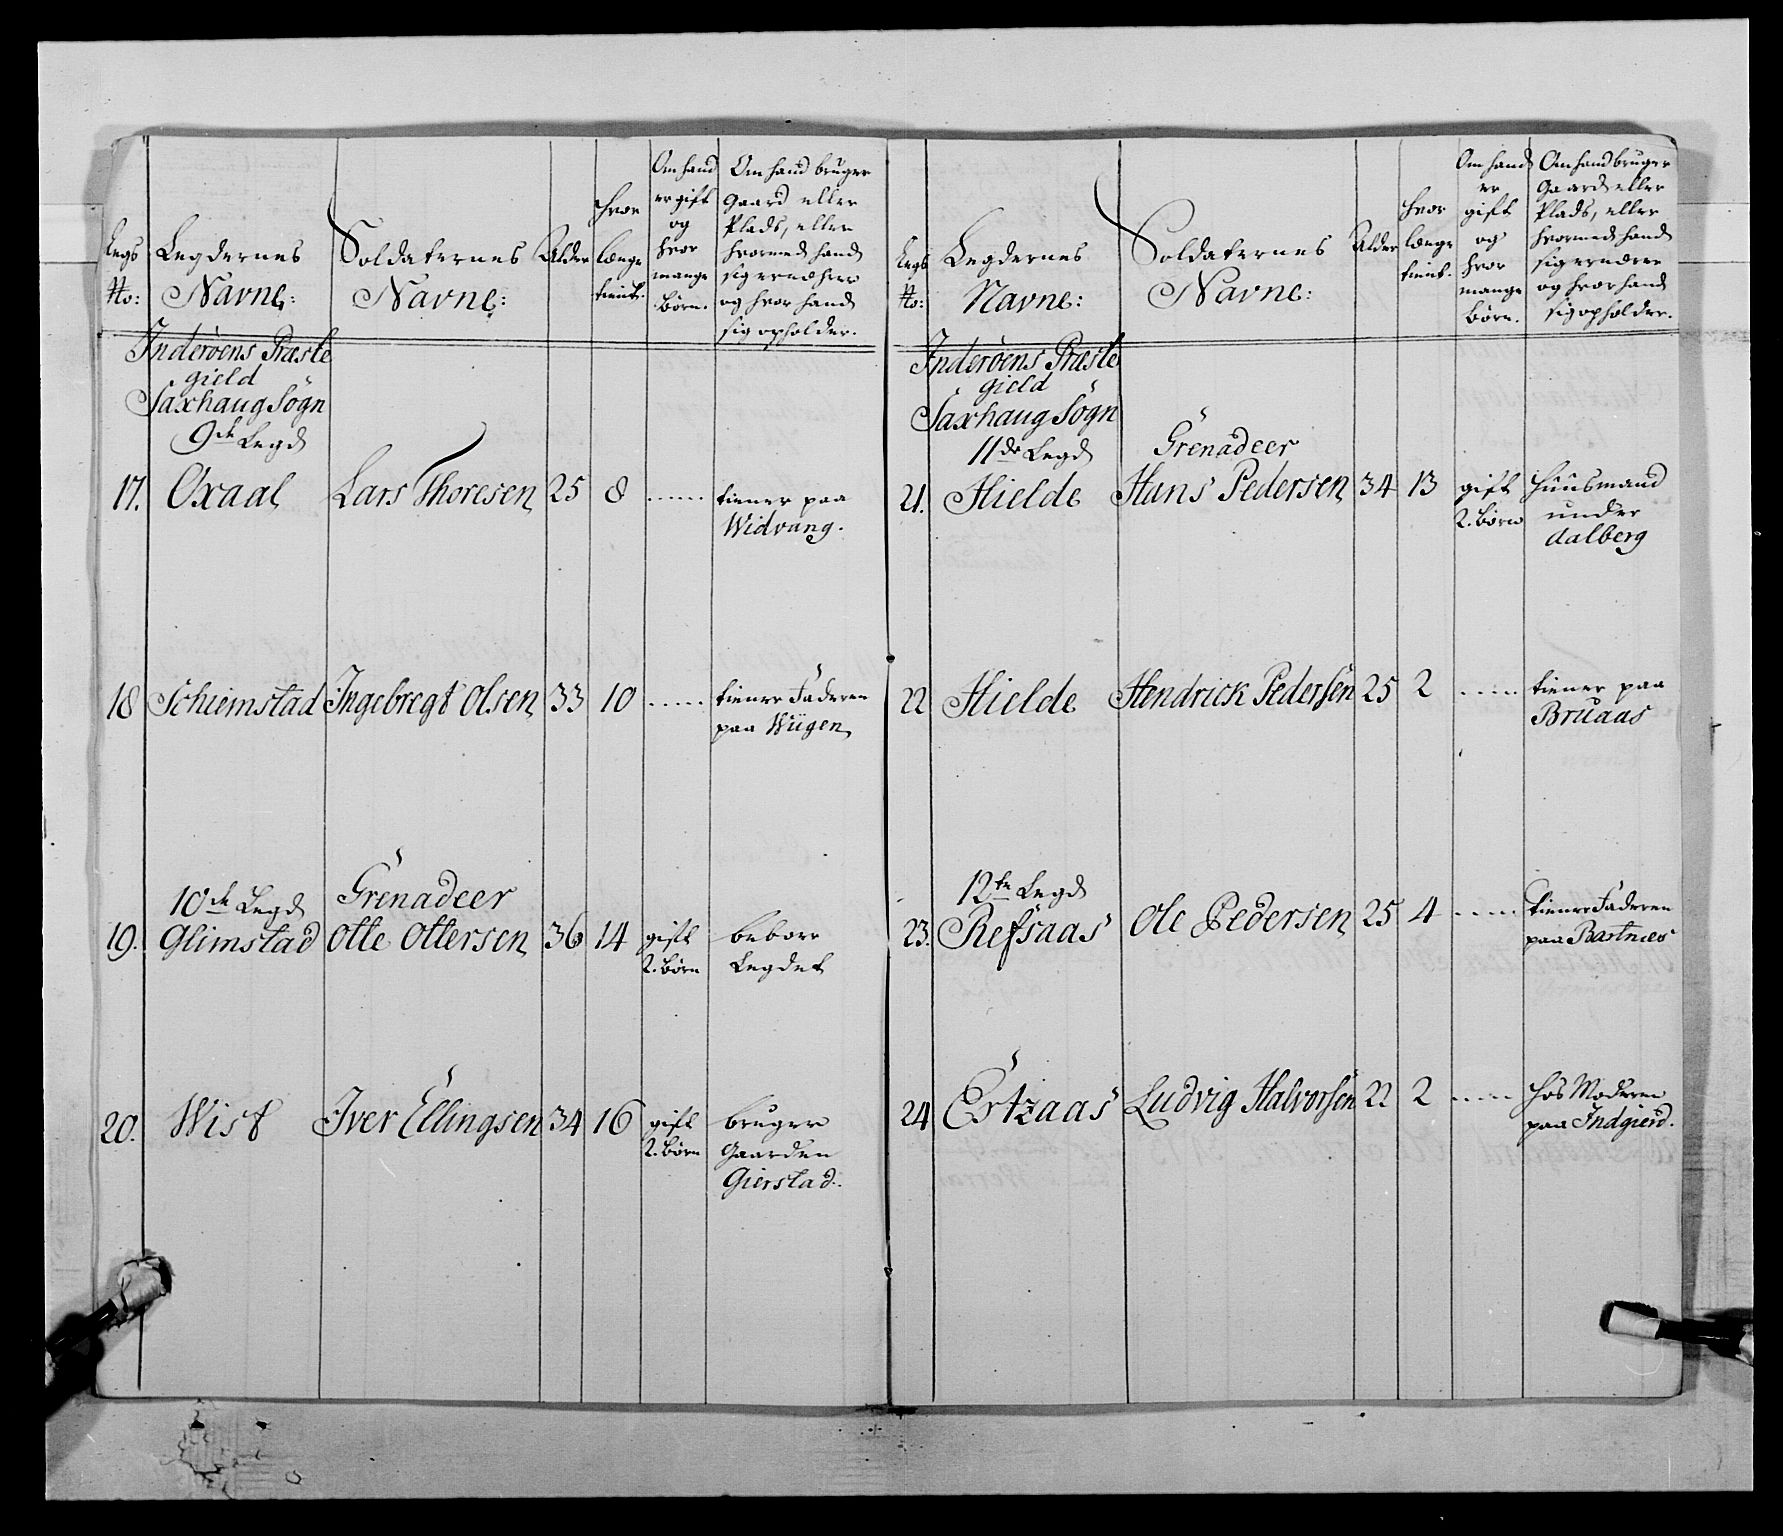 Legs
No:
Legdernes
Navne:
Soldaternes
Navne:
Alder
hvor
længe
tient.
Om hand
er gift
og
hvor
mange
børn.
Om hand bruger
Gaard eller
Plads, eller
hvormed hand
sig ernæhrer
og hvor hand
sig opholder.
Inderöens Præste
gield
Saxhaug Sögn
9de Legd
17. Oxaal Lars Thoresen 25 8 ...... tiener paa
Widvang.
18 Schiemstad Ingebregt Olsen 33 10 ..... tiener Faderen
paa Wiigen
10de Legd Grenadeer
19. Glimstad Otte Ottersen 36 14 gift beboer
2. børn Legdet
20. Wist Iver Ellingsen 34 16 gift bruger
2. børn Gaarden
Gierstad.
Legs
No:
Legdernes
Navne:
Soldaternes
Navne:
Alder
hvor
længe
tient.
Om hand
er
gift
og
hvor
mange
børn.
Om hand bruger
Gaard eller
Plads, eller
hvormed hand
sig ernærer
og hvor hand
sig opholder.
Inderöens Præste
gield
Saxhaug Sögn
11de Legd Grenadeer
21. Hielde Hans Pedersen 34 13 gift Huusmand
2. børn under
dalberg
22 Hielde Hendrick Pedersen 25 2 ..... tiener paa
Bruaas
12te Legd
23. Refsaas Ole Pedersen 25 4 ..... tiener Faderen
paa Bartnes
24 Ertzaas Ludvig Halvorsen 22 2 ..... hos Moderen
paa Indgierd.